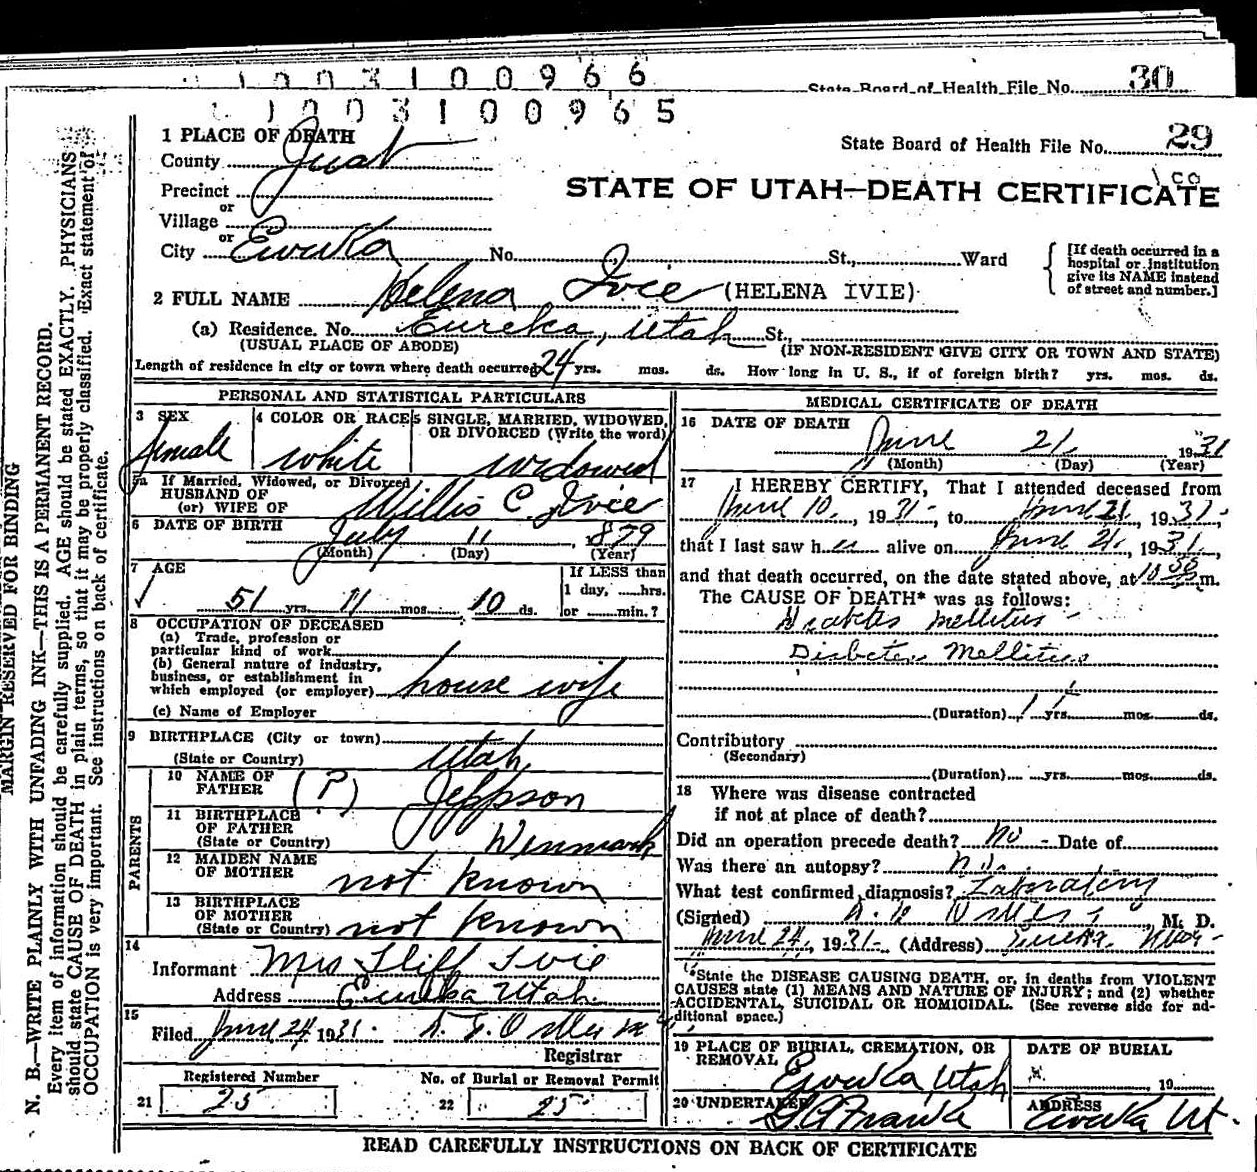 1 0 0 3 1 0 0 9 6 6
State Board of Health File No. 30
1 0 0 3 1 0 0 9 6 5
1 PLACE OF DEATH
State Board of Health File No. 29
County Juab
Precinct
or
STATE OF UTAH—DEATH CERTIFICATE
Village
or
City Eureka No. St., Ward
[If death occurred in a hospital or institution give its NAME instead of street and number.]
2 FULL NAME Helena Ivie (HELENA IVIE)
(a) Residence. No. Eureka, Utah St.,
(USUAL PLACE OF ABODE) (IF NON-RESIDENT GIVE CITY OR TOWN AND STATE)
Length of residence in city or town where death occurred 24 yrs. mos. ds. How long in U. S., if of foreign birth? yrs. mos. ds.
PERSONAL AND STATISTICAL PARTICULARS
3 SEX
female
4 COLOR OR RACE
white
5 SINGLE, MARRIED, WIDOWED,
OR DIVORCED (Write the word)
widowed
5a If Married, Widowed, or Divorced
HUSBAND OF
(or) WIFE OF Willis C. Ivie
6 DATE OF BIRTH July 11, 1879
(Month) (Day) (Year)
7 AGE
51 yrs. 11 mos. 10 ds.
If LESS than
1 day, hrs.
or min.?
8 OCCUPATION OF DECEASED
(a) Trade, profession or
particular kind of work
(b) General nature of industry,
business, or establishment in
which employed (or employer) house wife
(c) Name of Employer
9 BIRTHPLACE (City or town)
(State or Country) Utah
PARENTS
10 NAME OF
FATHER (?) Jeppson
11 BIRTHPLACE
OF FATHER
(State or Country) Denmark
12 MAIDEN NAME
OF MOTHER not known
13 BIRTHPLACE
OF MOTHER
(State or Country) not known
14
Informant Mrs Ivie
Address Eureka Utah
15
Filed June 24, 1931.
Registrar
Registered Number
21 25
No. of Burial or Removal Permit
22 25
MEDICAL CERTIFICATE OF DEATH
16 DATE OF DEATH
June 21 1931
(Month) (Day) (Year)
17 I HEREBY CERTIFY, That I attended deceased from
June 10, 1931, to June 21, 1931,
that I last saw her alive on June 21, 1931,
and that death occurred, on the date stated above, at 10 30 m.
The CAUSE OF DEATH* was as follows:
Diabetes Mellitus
Diabetes Mellitus
(Duration) yrs. mos. ds.
Contributory
(Secondary)
(Duration) yrs. mos. ds.
18 Where was disease contracted
if not at place of death?
Did an operation precede death? no Date of
Was there an autopsy? no.
What test confirmed diagnosis? Laboratory
(Signed) M. D.
June 24, 1931 (Address) Eureka Utah
*State the DISEASE CAUSING DEATH, or, in deaths from VIOLENT
CAUSES state (1) MEANS AND NATURE OF INJURY; and (2) whether
ACCIDENTAL, SUICIDAL OR HOMICIDAL. (See reverse side for ad-
ditional space.)
19 PLACE OF BURIAL, CREMATION, OR
REMOVAL Eureka Utah
DATE OF BURIAL
19
20 UNDERTAKER
ADDRESS
Eureka Ut.
READ CAREFULLY INSTRUCTIONS ON BACK OF CERTIFICATE
MARGIN RESERVED FOR BINDING
N. B.—WRITE PLAINLY WITH UNFADING INK—THIS IS A PERMANENT RECORD.
Every item of information should be carefully supplied. AGE should be stated EXACTLY. PHYSICIANS
should state CAUSE OF DEATH in plain terms, so that it may be properly classified. Exact statement of
OCCUPATION is very important. See instructions on back of certificate.